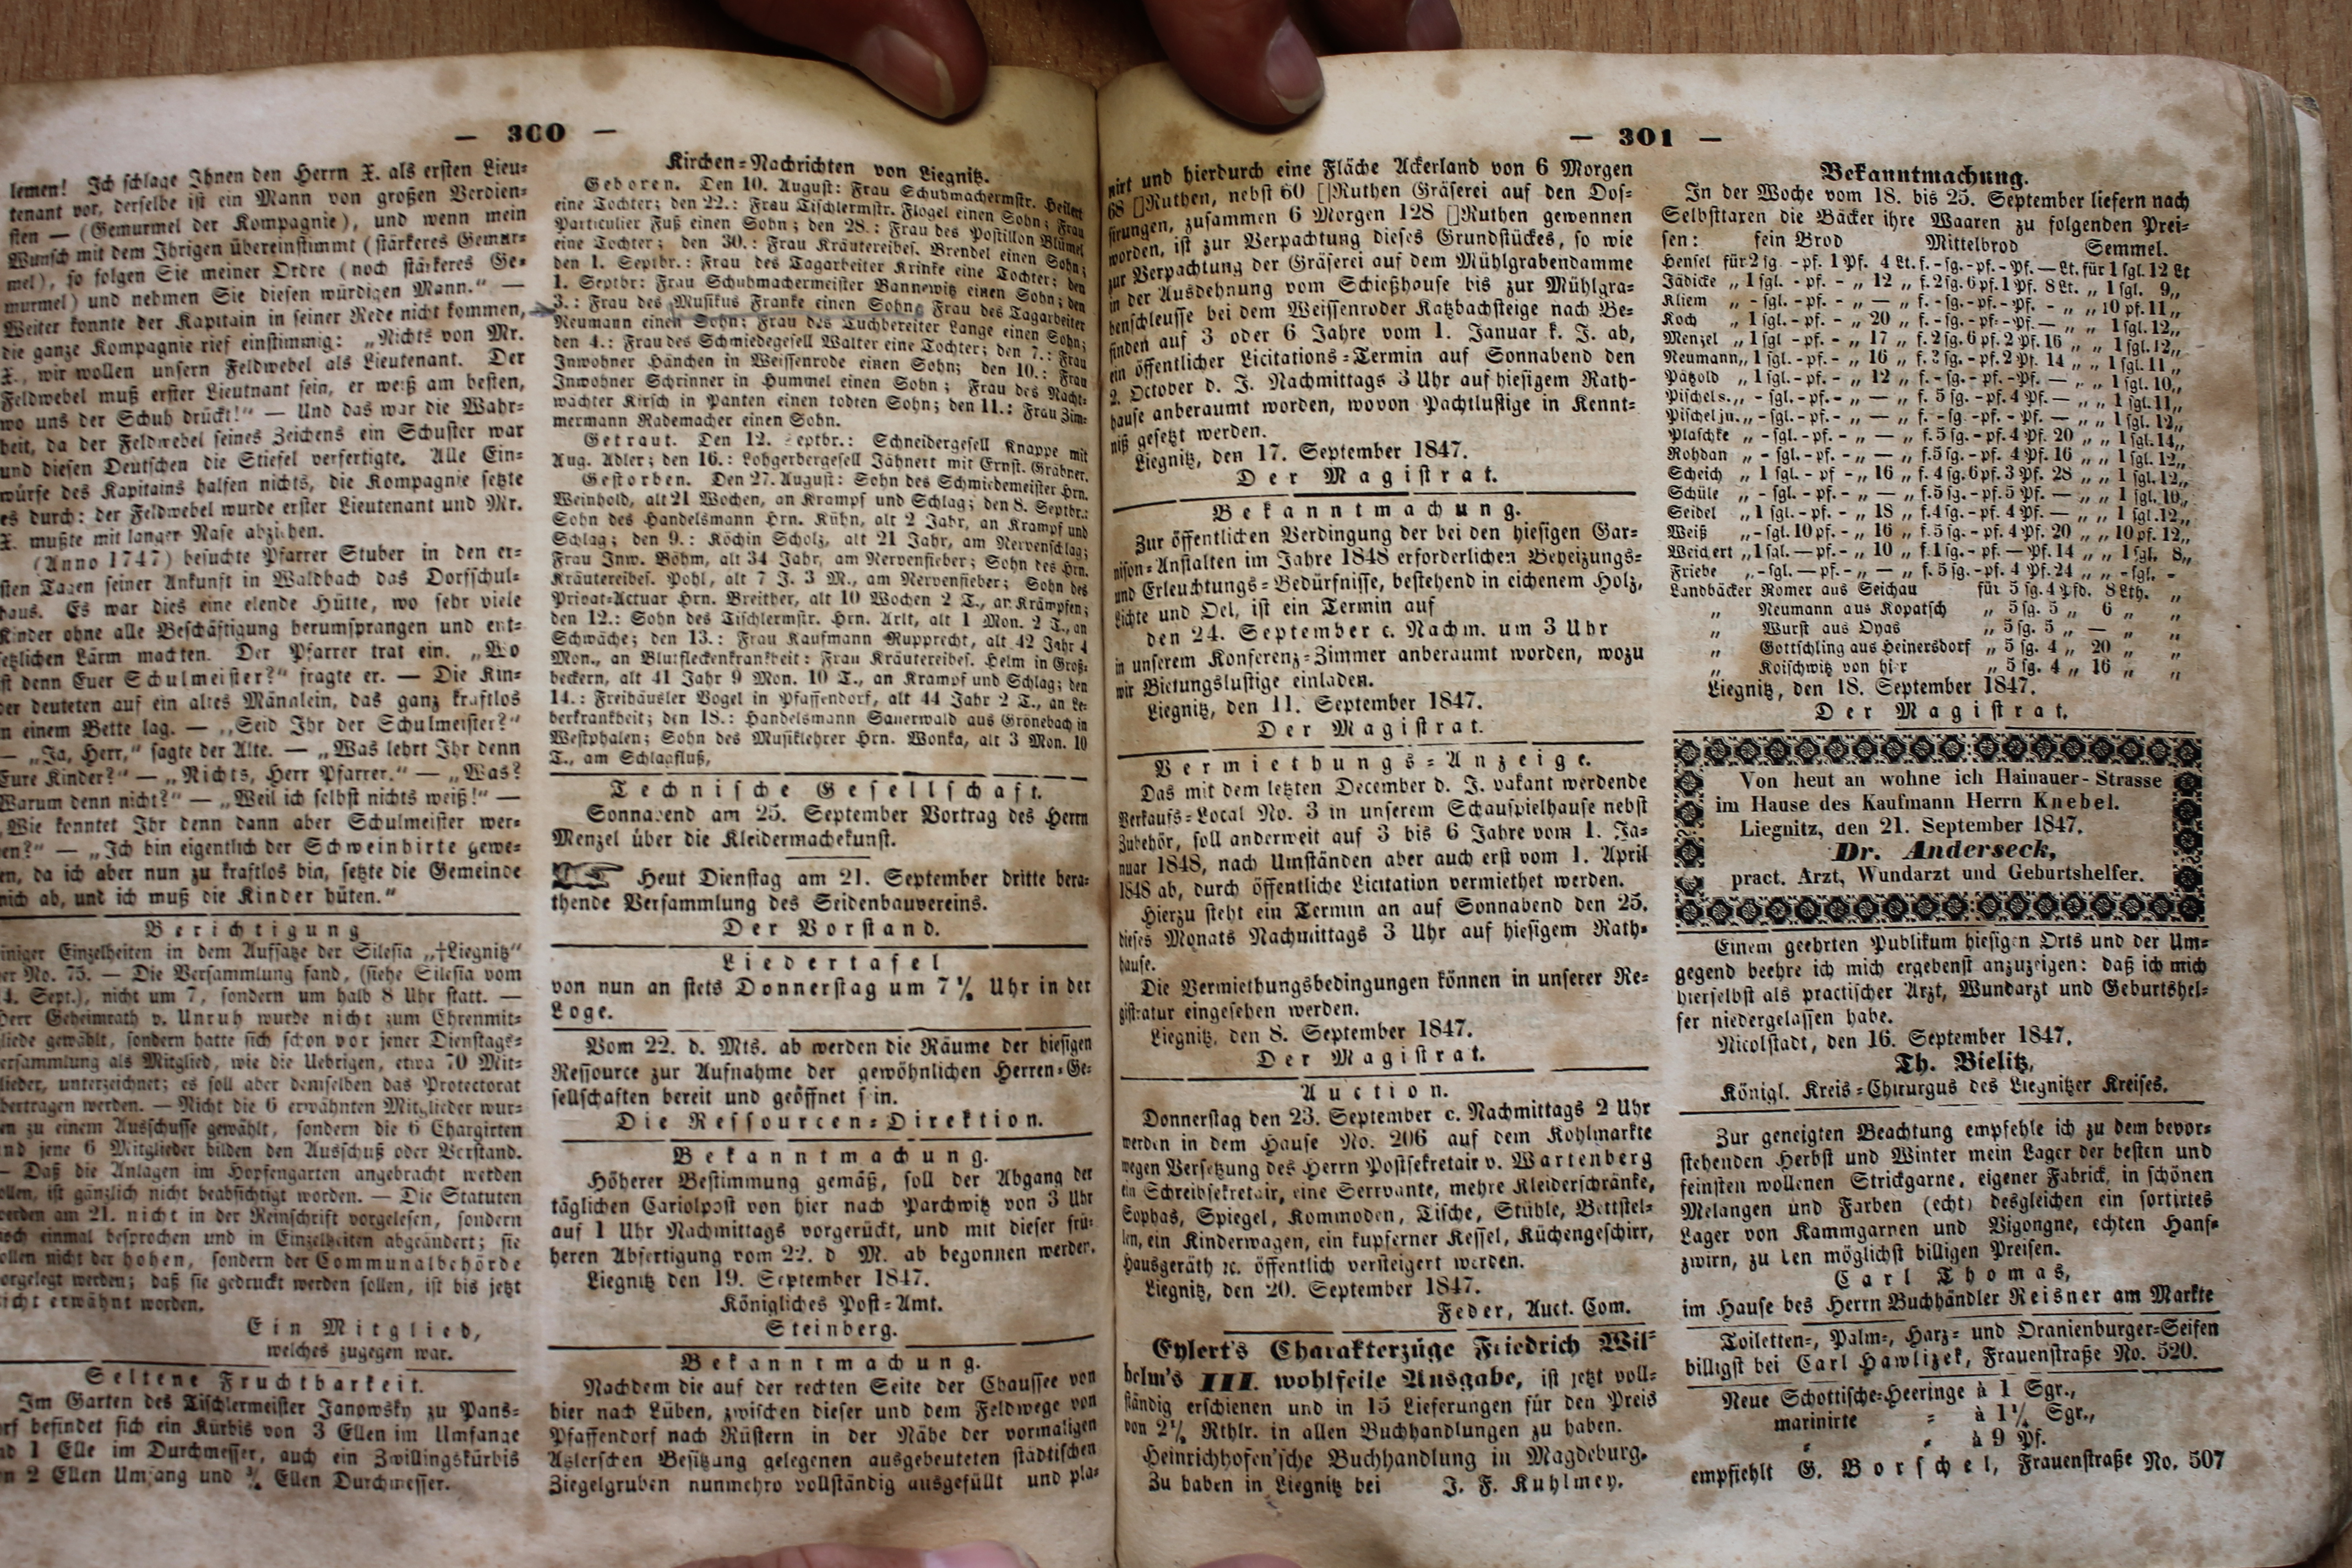 — 300 —
lemen! Ich schlage Ihnen den Herrn X. als ersten Lieu-
tenant vor, derselbe ist ein Mann von großen Verdien-
sten — (Gemurmel der Kompagnie), und wenn mein
Wunsch mit dem Ihrigen übereinstimmt (stärkeres Gemur-
mel), so folgen Sie meiner Ordre (noch stärkeres Ge-
murmel) und nehmen Sie diesen würdigen Mann.“ —
Weiter konnte der Kapitain in seiner Rede nicht kommen,
die ganze Kompagnie rief einstimmig: „Nichts von Mr.
X., wir wollen unsern Feldwebel als Lieutenant. Der
Feldwebel muß erster Lieutnant sein, er weiß am besten,
wo uns der Schuh drückt!“ — Und das war die Wahr-
heit, da der Feldwebel seines Zeichens ein Schuster war
und diesen Deutschen die Stiefel verfertigte. Alle Ein-
würfe des Kapitains halfen nichts, die Kompagnie setzte
es durch: der Feldwebel wurde erster Lieutenant und Mr.
X. mußte mit langer Nase abziehen.
(Anno 1747) besuchte Pfarrer Stuber in den er-
sten Tagen seiner Ankunft in Waldbach das Dorfschul-
haus. Es war dies eine elende Hütte, wo sehr viele
Kinder ohne alle Beschäftigung herumsprangen und ent-
setzlichen Lärm machten. Der Pfarrer trat ein. „Wo
ist denn Euer Schulmeister?“ fragte er. — Die Kin-
der deuteten auf ein altes Mänalein, das ganz kraftlos
in einem Bette lag. — „Seid Ihr der Schulmeister?“
— „Ja, Herr,“ sagte der Alte. — „Was lehrt Ihr denn
Eure Kinder?“ — „Nichts, Herr Pfarrer.“ — „Was?
Warum denn nicht?“ — „Weil ich selbst nichts weiß!“ —
„Wie konntet Ihr denn dann aber Schulmeister wer-
den?“ — „Ich bin eigentlich der Schweinhirte gewe-
sen, da ich aber nun zu kraftlos bin, setzte die Gemeinde
mich ab, und ich muß die Kinder hüten.“
Berichtigung
einiger Einzelheiten in dem Aufsatze der Silesia „†Liegnitz“
der No. 75. — Die Versammlung fand, (siehe Silesia vom
14. Sept.), nicht um 7, sondern um halb 8 Uhr statt. —
Herr Geheimrath v. Unruh wurde nicht zum Ehrenmit-
gliede gewählt, sondern hatte sich schon vor jener Dienstags-
versammlung als Mitglied, wie die Uebrigen, etwa 70 Mit-
glieder, unterzeichnet; es soll aber demselben das Protectorat
übertragen werden. — Nicht die 6 erwähnten Mitglieder wur-
den zu einem Ausschusse gewählt, sondern die 6 Chargirten
und jene 6 Mitglieder bilden den Ausschuß oder Vorstand.
— Daß die Anlagen im Hopfengarten angebracht werden
sollen, ist gänzlich nicht beabsichtigt worden. — Die Statuten
werden am 21. nicht in der Reinschrift vorgelesen, sondern
noch einmal besprochen und in Einzelheiten abgeändert; sie
sollen nicht der hohen, sondern der Communalbehörde
vorgelegt werden; daß sie gedruckt werden sollen, ist bis jetzt
nicht erwähnt worden.
Ein Mitglied,
welches zugegen war.
Seltene Fruchtbarkeit.
Im Garten des Tischlermeister Janowsky zu Pans-
dorf befindet sich ein Kürbis von 3 Ellen im Umfange
und 1 Elle im Durchmesser, auch ein Zwillingskürbis
von 2 Ellen Umfang und ¾ Ellen Durchmesser.
Kirchen-Nachrichten von Liegnitz.
Geboren. Den 10. August: Frau Schuhmachermstr. Heilert
eine Tochter; den 22.: Frau Tischlermstr. Flogel einen Sohn; Frau
Particulier Fuß einen Sohn; den 28.: Frau des Postillon Blümel
eine Tochter; den 30.: Frau Kräutereibes. Brendel einen Sohn;
den 1. Septbr.: Frau des Tagarbeiter Krinke eine Tochter; den
1. Septbr: Frau Schuhmachermeister Bannewitz einen Sohn; den
3.: Frau des Musikus Franke einen Sohn; Frau des Tagarbeiter
Neumann einen Sohn; Frau des Tuchbereiter Lange einen Sohn;
den 4.: Frau des Schmiedegesell Walter eine Tochter; den 7.: Frau
Inwohner Hänchen in Weissenrode einen Sohn; den 10.: Frau
Inwohner Schrinner in Hummel einen Sohn; Frau des Nacht-
wächter Kirsch in Panten einen todten Sohn; den 11.: Frau Zim-
mermann Rademacher einen Sohn.
Getraut. Den 12. Septbr.: Schneidergesell Knappe mit
Aug. Adler; den 16.: Lohgerbergesell Jähnert mit Ernst. Gräbner.
Gestorben. Den 27. August: Sohn des Schmiedemeister Hrn.
Weinhold, alt 21 Wochen, an Krampf und Schlag; den 8. Septbr.:
Sohn des Handelsmann Hrn. Kühn, alt 2 Jahr, an Krampf und
Schlag; den 9.: Köchin Scholz, alt 21 Jahr, am Nervenschlag;
Frau Inw. Böhm, alt 34 Jahr, am Nervenfieber; Sohn des Hrn.
Kräutereibes. Pohl, alt 7 J. 3 M., am Nervenfieber; Sohn des
Privat-Actuar Hrn. Breither, alt 10 Wochen 2 T., an Krämpfen;
den 12.: Sohn des Tischlermstr. Hrn. Arlt, alt 1 Mon. 2 T., an
Schwäche; den 13.: Frau Kaufmann Rupprecht, alt 42 Jahr 4
Mon., an Blutfleckenkrankheit: Frau Kräutereibes. Helm in Groß-
beckern, alt 41 Jahr 9 Mon. 10 T., an Krampf und Schlag; den
14.: Freihäusler Vogel in Pfaffendorf, alt 44 Jahr 2 T., an Le-
berkrankheit; den 18.: Handelsmann Sauerwald aus Grönebach in
Westphalen; Sohn des Musiklehrer Hrn. Wonka, alt 3 Mon. 10
T., am Schlagfluß,
Technische Gesellschaft.
Sonnabend am 25. September Vortrag des Herrn
Menzel über die Kleidermachekunst.
Heut Dienstag am 21. September dritte bera-
thende Versammlung des Seidenbauvereins.
Der Vorstand.
Liedertafel
von nun an stets Donnerstag um 7½ Uhr in der
Loge.
Vom 22. d. Mts. ab werden die Räume der hiesigen
Ressource zur Aufnahme der gewöhnlichen Herren-Ge-
sellschaften bereit und geöffnet sein.
Die Ressourcen-Direktion.
Bekanntmachung.
Höherer Bestimmung gemäß, soll der Abgang der
täglichen Cariolpost von hier nach Parchwitz von 3 Uhr
auf 1 Uhr Nachmittags vorgerückt, und mit dieser frü-
heren Abfertigung vom 22. d M. ab begonnen werden.
Liegnitz den 19. September 1847.
Königliches Post-Amt.
Steinberg.
Bekanntmachung.
Nachdem die auf der rechten Seite der Chaussee von
hier nach Lüben, zwischen dieser und dem Feldwege von
Pfaffendorf nach Rüstern in der Nähe der vormaligen
Atzlerschen Besitzung gelegenen ausgebeuteten städtischen
Ziegelgruben nunmehro vollständig ausgefüllt und pla-
— 301 —
nirt und hierdurch eine Fläche Ackerland von 6 Morgen
68 []Ruthen, nebst 60 []Ruthen Gräserei auf den Dos-
sirungen, zusammen 6 Morgen 128 []Ruthen gewonnen
worden, ist zur Verpachtung dieses Grundstückes, so wie
zur Verpachtung der Gräserei auf dem Mühlgrabendamme
in der Ausdehnung vom Schießhause bis zur Mühlgra-
benschleusse bei dem Weissenroder Katzbachsteige nach Be-
finden auf 3 oder 6 Jahre vom 1. Januar k. J. ab,
ein öffentlicher Licitations-Termin auf Sonnabend den
2. October d. J. Nachmittags 3 Uhr auf hiesigem Rath-
hause anberaumt worden, wovon Pachtlustige in Kennt-
niß gesetzt werden.
Liegnitz, den 17. September 1847.
Der Magistrat.
Bekanntmachung.
Zur öffentlichen Verdingung der bei den hiesigen Gar-
nison-Anstalten im Jahre 1848 erforderlichen Beheizungs-
und Erleuchtungs-Bedürfnisse, bestehend in eichenem Holz,
Lichte und Oel, ist ein Termin auf
den 24. September c. Nachm. um 3 Uhr
in unserem Konferenz-Zimmer anberaumt worden, wozu
wir Bietungslustige einladen.
Liegnitz, den 11. September 1847.
Der Magistrat.
Vermiethungs-Anzeige.
Das mit dem letzten December d. J. vakant werdende
Verkaufs-Local No. 3 in unserem Schauspielhause nebst
Zubehör, soll anderweit auf 3 bis 6 Jahre vom 1. Ja-
nuar 1848, nach Umständen aber auch erst vom 1. April
1848 ab, durch öffentliche Licitation vermiethet werden.
Hierzu steht ein Termin an auf Sonnabend den 25.
dieses Monats Nachmittags 3 Uhr auf hiesigem Rath-
hause.
Die Vermiethungsbedingungen können in unserer Re-
gistratur eingesehen werden.
Liegnitz, den 8. September 1847.
Der Magistrat.
Auction.
Donnerstag den 23. September c. Nachmittags 2 Uhr
werden in dem Hause No. 206 auf dem Kohlmarkte
wegen Versetzung des Herrn Postsekretair v. Wartenberg
ein Schreibsekretair, eine Serrvante, mehre Kleiderschränke,
Sophas, Spiegel, Kommoden, Tische, Stühle, Bettstel-
len, ein Kinderwagen, ein kupferner Kessel, Küchengeschirr,
Hausgeräth ꝛc. öffentlich versteigert werden.
Liegnitz, den 20. September 1847.
Feder, Auct. Com.
Eylert's Charakterzüge Friedrich Wil-
helm's III. wohlfeile Ausgabe, ist jetzt voll-
ständig erschienen und in 15 Lieferungen für den Preis
von 2½ Rthlr. in allen Buchhandlungen zu haben.
Heinrichhofen'sche Buchhandlung in Magdeburg.
Zu haben in Liegnitz bei J. F. Kuhlmey.
Bekanntmachung.
In der Woche vom 18. bis 25. September liefern nach
Selbsttaxen die Bäcker ihre Waaren zu folgenden Prei-
sen: fein Brod Mittelbrod Semmel.
Hensel für 2 sg. - pf. 1 Pf. 4 Lt. f. - sg. - pf. - Pf. — Lt. für 1 sgl. 12 Lt
Jädicke „ 1 sgl. - pf. - „ 12 „ f. 2 sg. 6 pf. 1 Pf. 8 Lt. „ 1 sgl. 9„
Kliem „ - sgl. - pf. - „ — „ f. - sg. - pf. - Pf. - „ „ 10 pf. 11„
Koch „ 1 sgl. - pf. - „ 20 „ f. - sg. - pf. - Pf. — „ „ 1 sgl. 12„
Menzel „ 1 sgl - pf. - „ 17 „ f. 2 sg. 6 pf. 2 Pf. 16 „ „ 1 sgl. 12„
Neumann„ 1 sgl. - pf. - „ 16 „ f. 2 sg. - pf. 2 Pf. 14 „ „ 1 sgl. 11„
Pätzold „ 1 sgl. - pf. - „ 12 „ f. - sg. - pf. - Pf. — „ „ 1 sgl. 10„
Pischel s. „ - sgl. - pf. - „ — „ f. 5 sg. - pf. 4 Pf. — „ „ 1 sgl. 11„
Pischel jn. „ - sgl. - pf. - „ — „ f. - sg - pf. - Pf. — „ „ 1 sgl. 12„
Plaschke „ - sgl. - pf. - „ — „ f. 5 sg. - pf. 4 Pf. 20 „ „ 1 sgl. 14„
Rohdan „ - sgl. - pf. - „ — „ f. 5 sg. - pf. 4 Pf. 16 „ „ 1 sgl. 12„
Scheich „ 1 sgl. - pf - „ 16 „ f. 4 sg. 6 pf. 3 Pf. 28 „ „ 1 sgl. 12„
Schüle „ - sgl. - pf. - „ — „ f. 5 sg. - pf. 5 Pf. — „ „ 1 sgl. 10„
Seidel „ 1 sgl. - pf. - „ 18 „ f. 4 sg. - pf. 4 Pf. — „ „ 1 sgl. 12„
Weiß „ - sgl. 10 pf. - „ 16 „ f. 5 sg. - pf. 4 Pf. 20 „ „ 10 pf. 12„
Weichert „ 1 sgl. — pf. - „ 10 „ f. 1 sg. - pf. — Pf. 14 „ „ 1 sgl. 8„
Friebe „ - sgl. — pf. - „ — „ f. 5 sg. - pf. 4 Pf. 24 „ „ - sgl. -
Landbäcker Römer aus Seichau für 5 sg. 4 Pfd. 8 Lth. „
„ Neumann aus Kopatsch „ 5 sg. 5 „ 6 „ „
„ Wurst aus Oyas „ 5 sg. 5 „ — „ „
„ Gottschling aus Heinersdorf „ 5 sg. 4 „ 20 „ „
„ Koischwitz von hier „ 5 sg. 4 „ 16 „ „
Liegnitz, den 18. September 1847.
Der Magistrat.
Von heut an wohne ich Hainauer-Strasse
im Hause des Kaufmann Herrn Knebel.
Liegnitz, den 21. September 1847.
Dr. Anderseck,
pract. Arzt, Wundarzt und Geburtshelfer.
Einem geehrten Publikum hiesigen Orts und der Um-
gegend beehre ich mich ergebenst anzuzeigen: daß ich mich
hierselbst als practischer Arzt, Wundarzt und Geburtshel-
fer niedergelassen habe.
Nicolstadt, den 16. September 1847.
Th. Bielitz,
Königl. Kreis-Chirurgus des Liegnitzer Kreises.
Zur geneigten Beachtung empfehle ich zu dem bevor-
stehenden Herbst und Winter mein Lager der besten und
feinsten wollenen Strickgarne, eigener Fabrick, in schönen
Melangen und Farben (echt) desgleichen ein sortirtes
Lager von Kammgarnen und Vigongne, echten Hanf-
zwirn, zu den möglichst billigen Preisen.
Carl Thomas,
im Hause des Herrn Buchhändler Reisner am Markte
Toiletten-, Palm-, Harz- und Oranienburger-Seifen
billigst bei Carl Hawlizek, Frauenstraße No. 520.
Neue Schottische-Heeringe à 1 Sgr.,
marinirte - à 1¼ Sgr.,
- - à 9 Pf.
empfiehlt G. Borschel, Frauenstraße No. 507